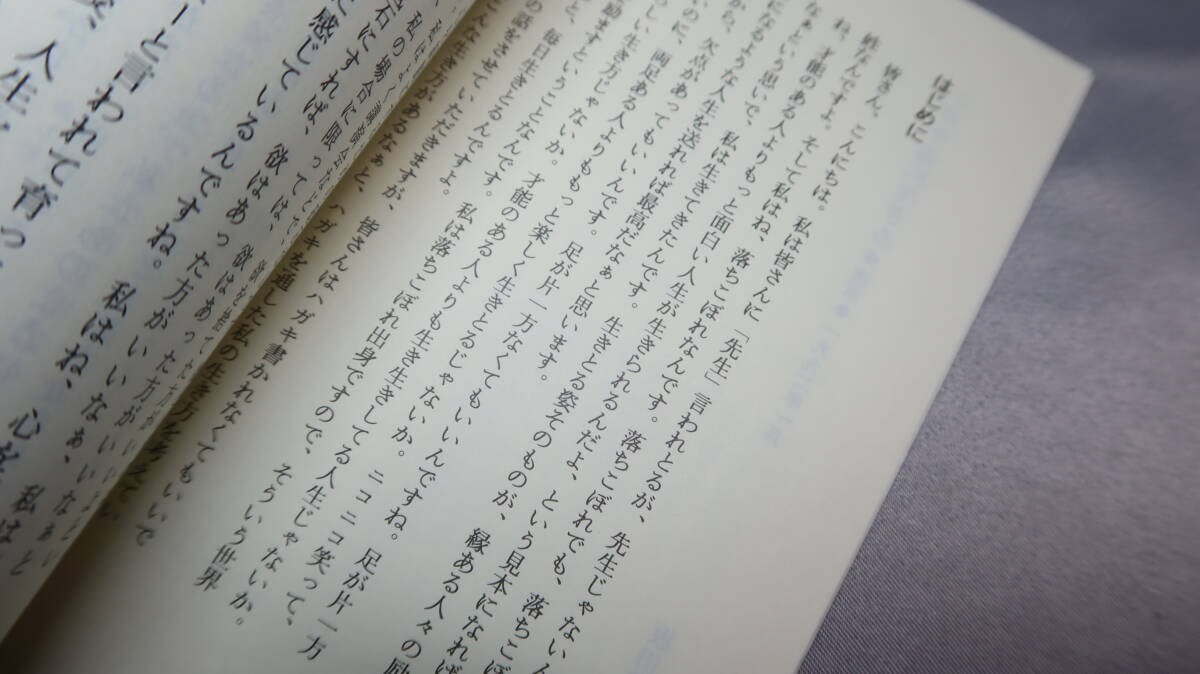 はじめに
皆さん、こんにちは。私は皆さんに「先生」言われとるが、先生じゃないん
姓なんですよ。そして私はね、落ちこぼれなんです。落ちこぼれでも、落ちこぼ
れ、才能のある人よりもっと面白い人生が生きられるんだよ、という見本になれば
なぁという思いで、私は生きてきたんです。生きとる姿そのものが、縁ある人々の励
になるような人生を送れれば最高だなぁと思います。
から、欠点があってもいいんです。足が片一方なくてもいいんですね。足が片一方
いのに、両足ある人よりももっと楽しく生きとるじゃないか。ニコニコ笑って、
らしい生き方じゃないか。才能のある人よりも生き生きしてる人生じゃないか。
励ますということなんです。私は落ちこぼれ出身ですので、そういう世界
と、毎日生きとるんです。
の話をさせていただきますが、皆さんはハガキ書かれなくてもいいで
んな生き方があるなぁと、ハガキを通した私の生き方を考えてい
石にすれば、欲はあった方がいいなぁ
と感じているんですね。私はね、心が
ーと言われて育っ
人生